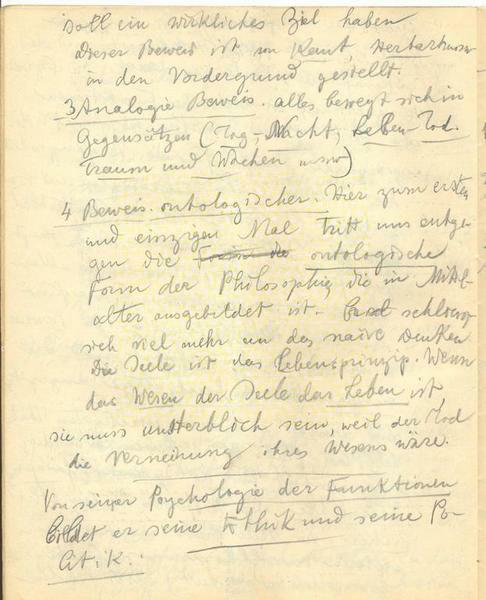 soll ein wirkliches Ziel haben
dieser Beweis ist von Kant,
in den Vordergrund gestellt.
3 Analogie Beweis. alles bewegt sich in
Gegensätzen (Tag-, Nacht, Leben-Tod.
Traum und Wachen usw)
4 Beweis. ontologischer. Hier zum ersten
und einzigen Mal tritt uns entge-
gen die Form die ontologische
Form der Philosophie, die in Mittel-
alter ausgebildet ist. schliesst
sich viel mehr an das naive Denken
Die Seele ist das Lebensprinzip. Wenn
das Wesen der Seele das Leben ist,
sie muss unsterblich sein, weil der Tod
die Verneinung ihres Wesens wäre.
Von seiner Psychologie der Funktionen
bildet er seine Ethik und seine Po-
litik.